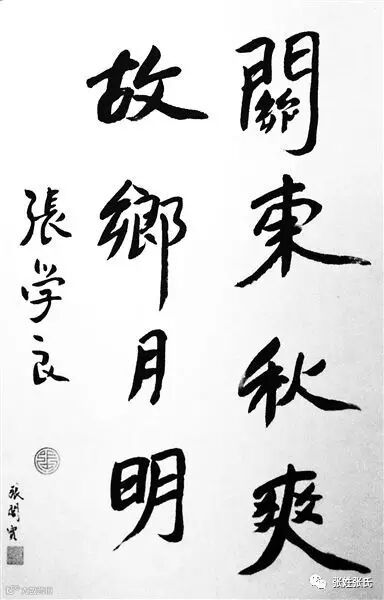 關東秋爽
故鄉月明
張学良
張閭實
张姓张氏